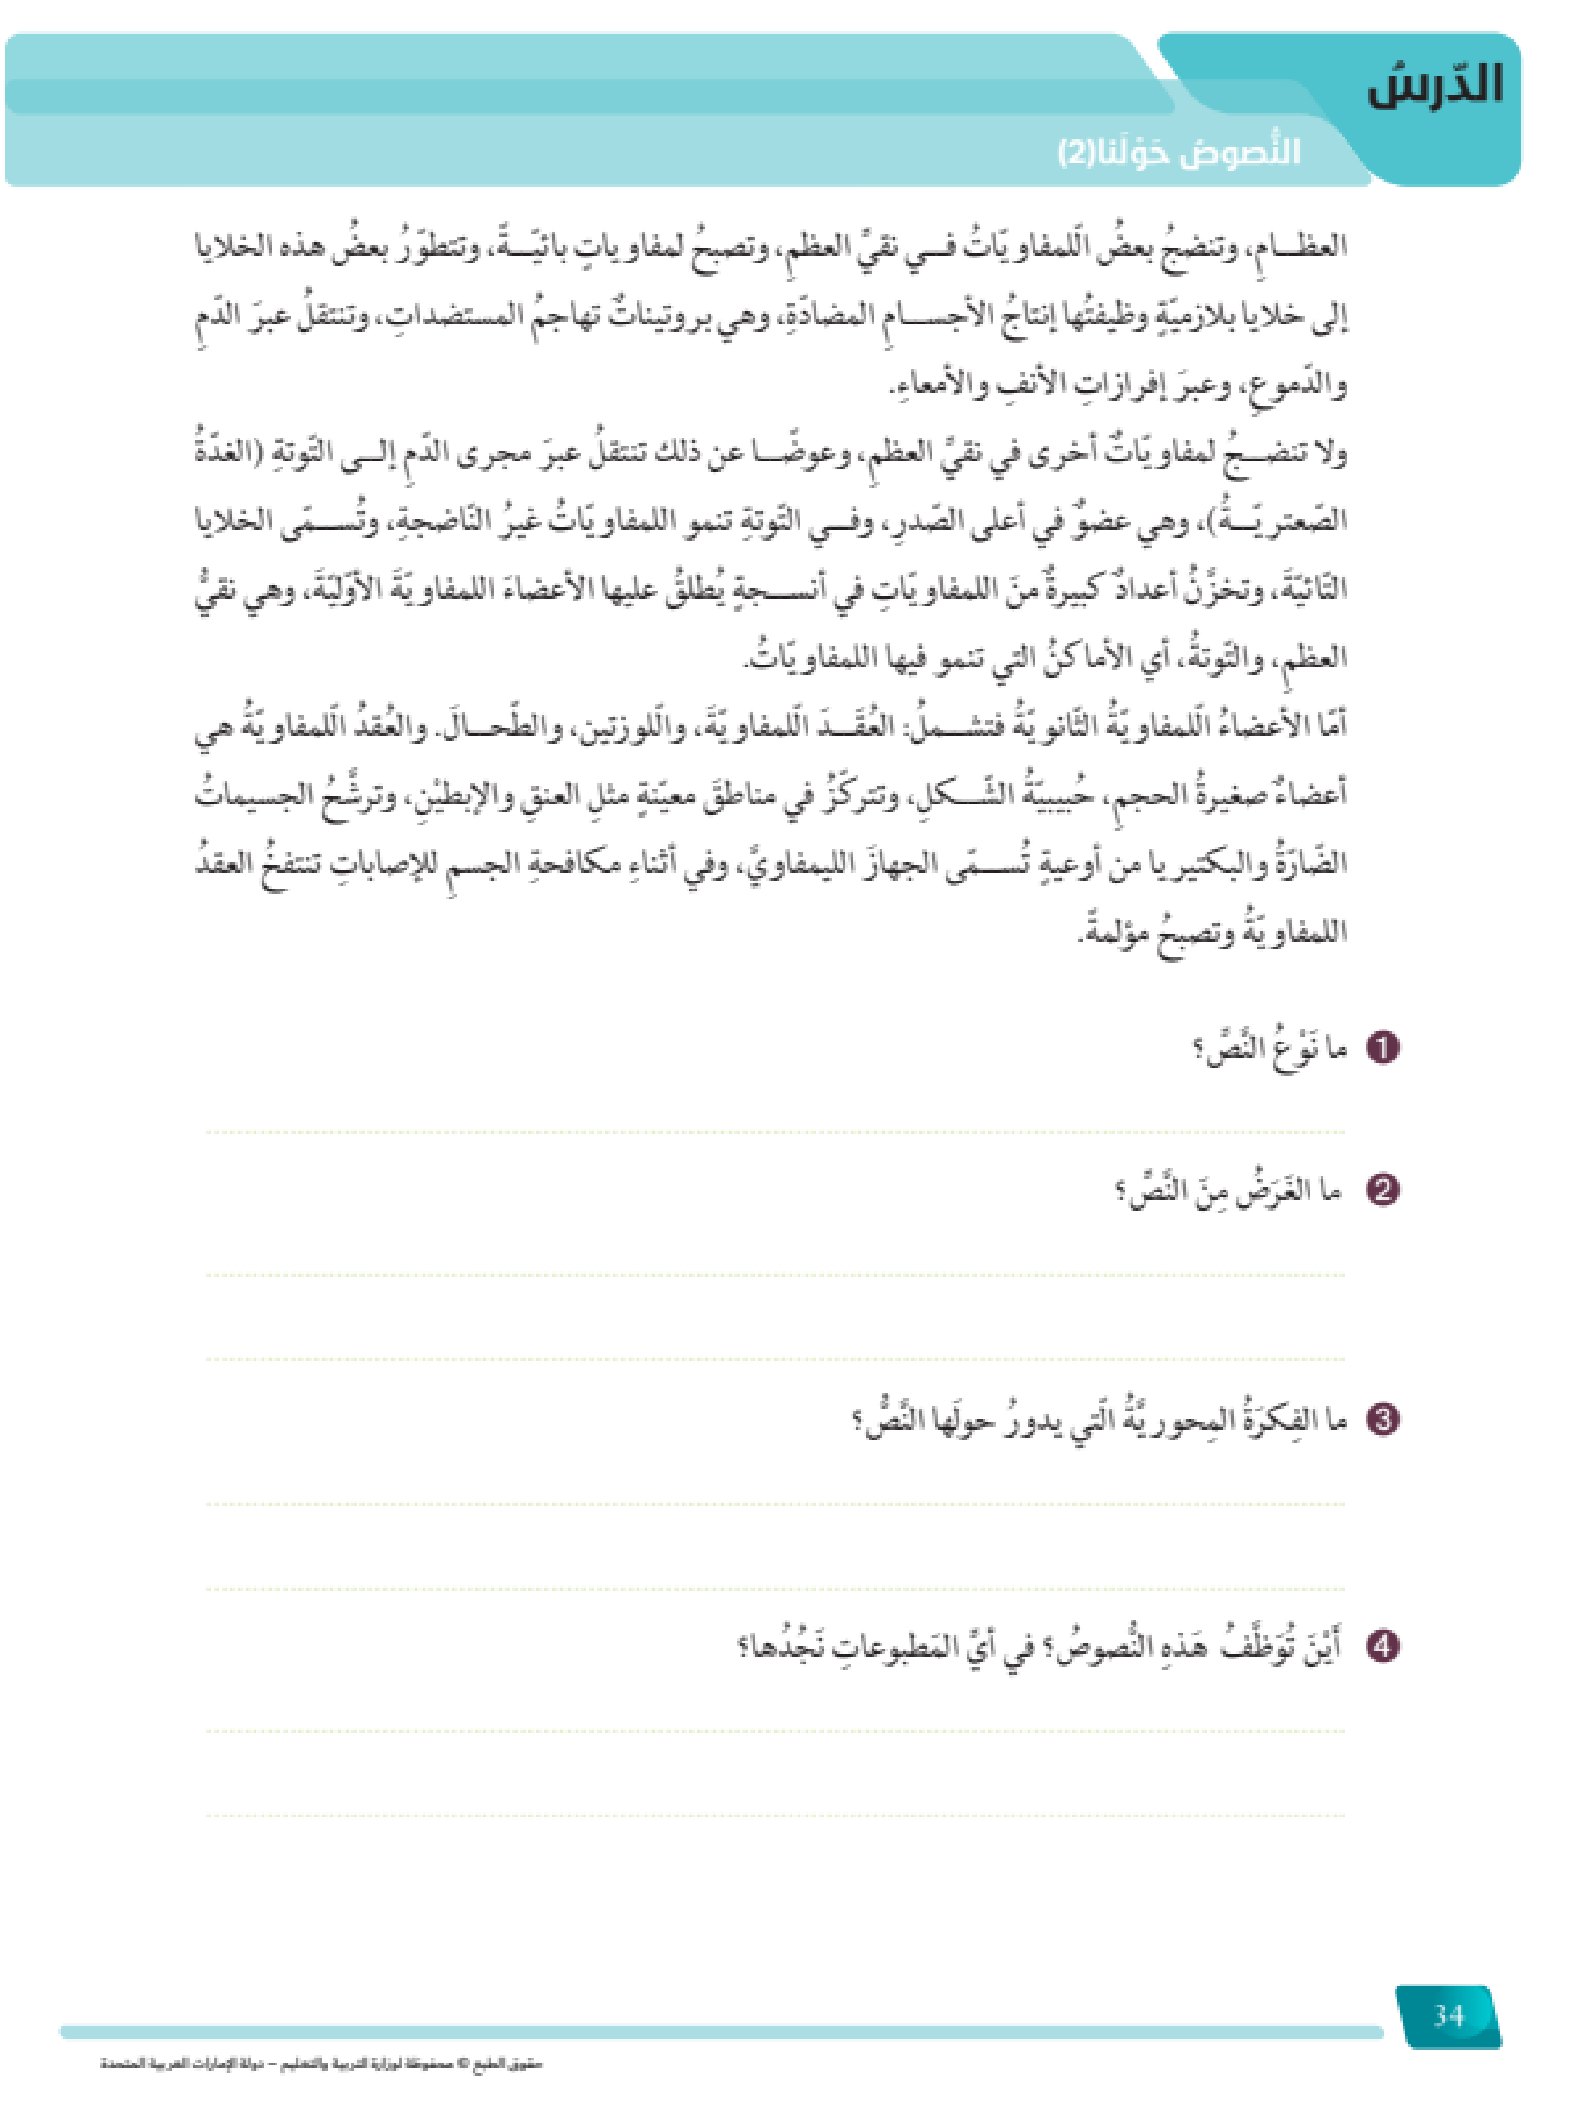 الدّرسُ
النُّصوصُ حَوْلَنا(2)
العظامِ، وتنضجُ بعضُ الّلمفاويّاتُ في نقيِّ العظمِ، وتصبحُ لمفاوياتٍ بائيّةً، وتتطوّرُ بعضُ هذه الخلايا
إلى خلايا بلازميّةٍ وظيفتُها إنتاجُ الأجسامِ المضادّةِ، وهي بروتيناتٌ تهاجمُ المستضداتِ، وتنتقلُ عبرَ الدّمِ
والدّموعِ، وعبرَ إفرازاتِ الأنفِ والأمعاءِ.
ولا تنضجُ لمفاويّاتٌ أخرى في نقيِّ العظمِ، وعوضًا عن ذلك تنتقلُ عبرَ مجرى الدّمِ إلى التّوتةِ (الغدّةُ
الصّعتريّةُ)، وهي عضوٌ في أعلى الصّدرِ، وفي التّوتةِ تنمو اللمفاويّاتُ غيرُ النّاضجةِ، وتُسمّى الخلايا
التّائيّةَ، وتخزَّنُ أعدادٌ كبيرةٌ منَ اللمفاويّاتِ في أنسجةٍ يُطلقُ عليها الأعضاءَ اللمفاويّةَ الأوّليّةَ، وهي نقيُّ
العظمِ، والتّوتةُ، أي الأماكنُ التي تنمو فيها اللمفاويّاتُ.
أمّا الأعضاءُ الّلمفاويّةُ الثّانويّةُ فتشملُ: العُقَدَ الّلمفاويّةَ، والّلوزتين، والطّحالَ. والعُقدُ الّلمفاويّةُ هي
أعضاءٌ صغيرةُ الحجمِ، حُبيبيّةُ الشّكلِ، وتتركّزُ في مناطقَ معيّنةٍ مثلِ العنقِ والإبطيْنِ، وترشَّحُ الجسيماتُ
الضّارّةُ والبكتيريا من أوعيةٍ تُسمّى الجهازَ الليمفاويَّ، وفي أثناءِ مكافحةِ الجسمِ للإصاباتِ تنتفخُ العقدُ
اللمفاويّةُ وتصبحُ مؤلمةً.
1 ما نَوْعُ النَّصِّ؟
2 ما الغَرَضُ مِنَ النَّصِّ؟
3 ما الفِكرَةُ المِحوريَّةُ الّتي يدورُ حولَها النَّصُّ؟
4 أَيْنَ تُوَظَّفُ هَذهِ النُّصوصُ؟ في أيِّ المَطبوعاتِ نَجُدُها؟
34
حقوق الطبع © محفوظة لوزارة التربية والتعليم – دولة الإمارات العربية المتحدة